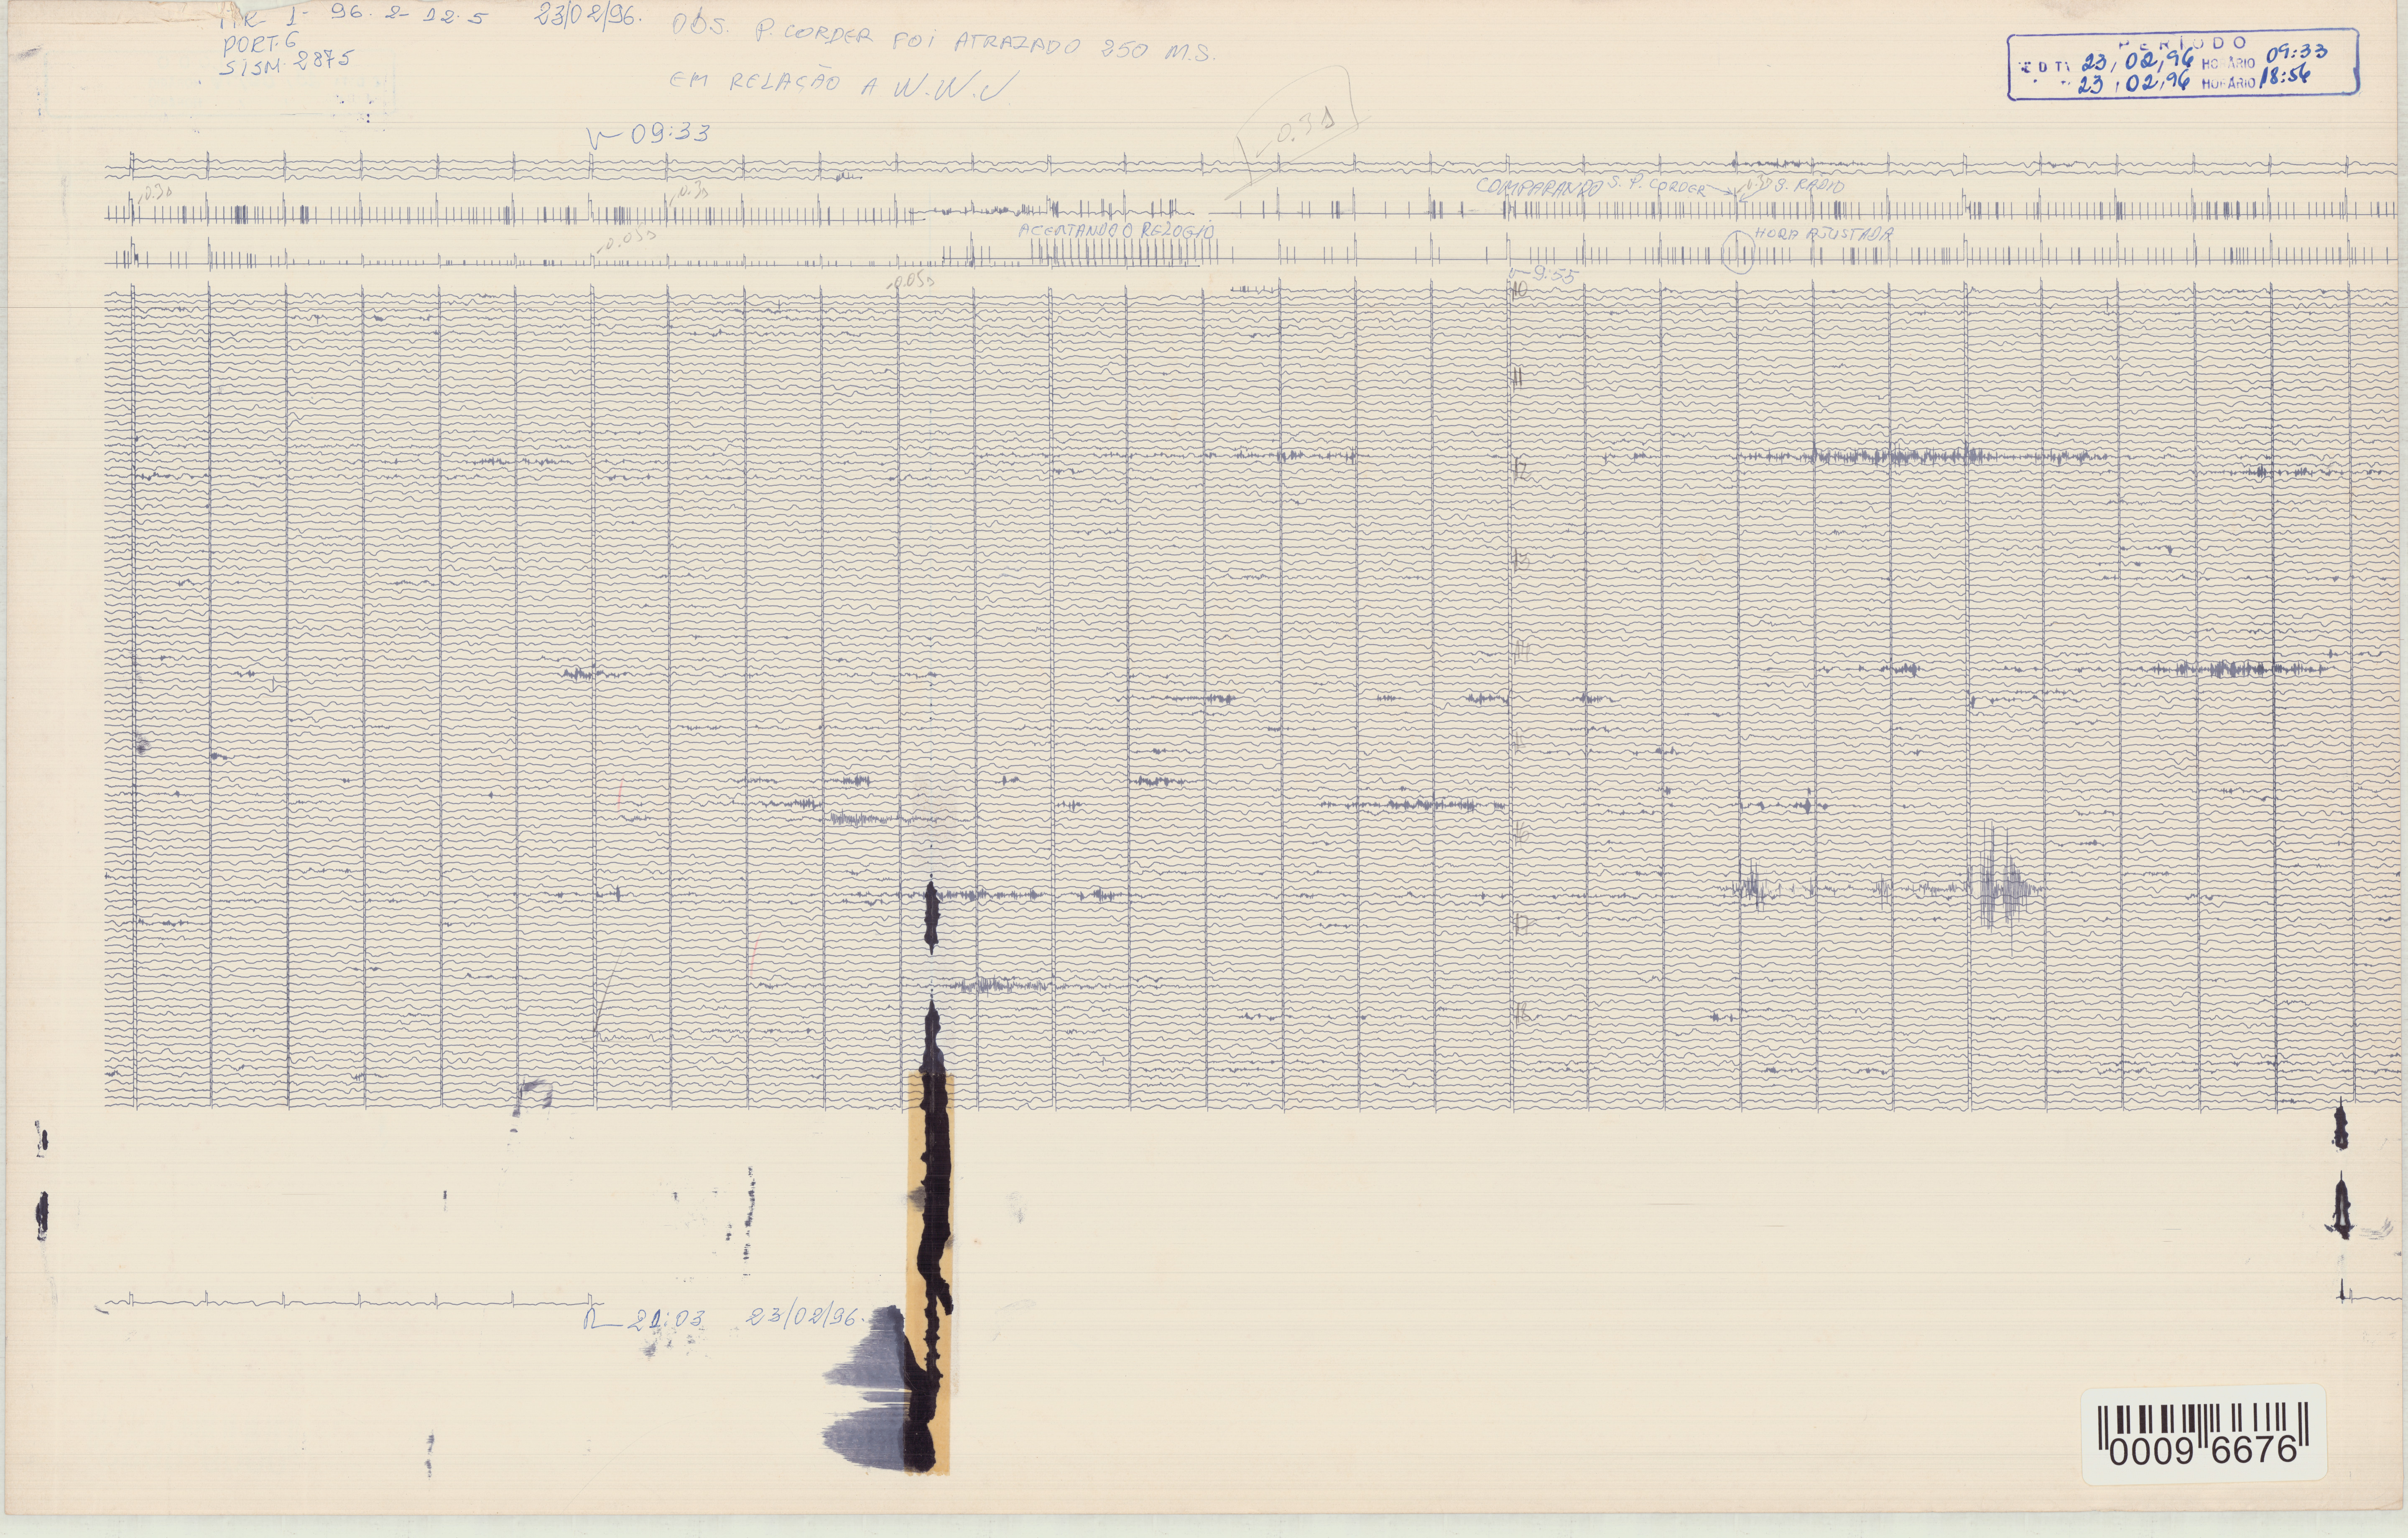 1- 96.2-12.5 23/02/96. OBS. P. CORDER FOI ATRAZADO 250 M.S.
PORT. 6
SISM. 2875
EM RELAÇÃO A W.W.V
PERÍODO
23/02/96 HORÁRIO 09:33
23/02/96 HORÁRIO 18:56
09:33
-0.3s
-0.3s
-0.3s
COMPARANDO S. P. CORDER
S. RÁDIO
-0.05s
ACERTANDO O RELOGIO
HORA AJUSTADA
-0.05s
9:55
10
11
12
13
14
16
17
18
21:03 23/02/96.
0009 6676